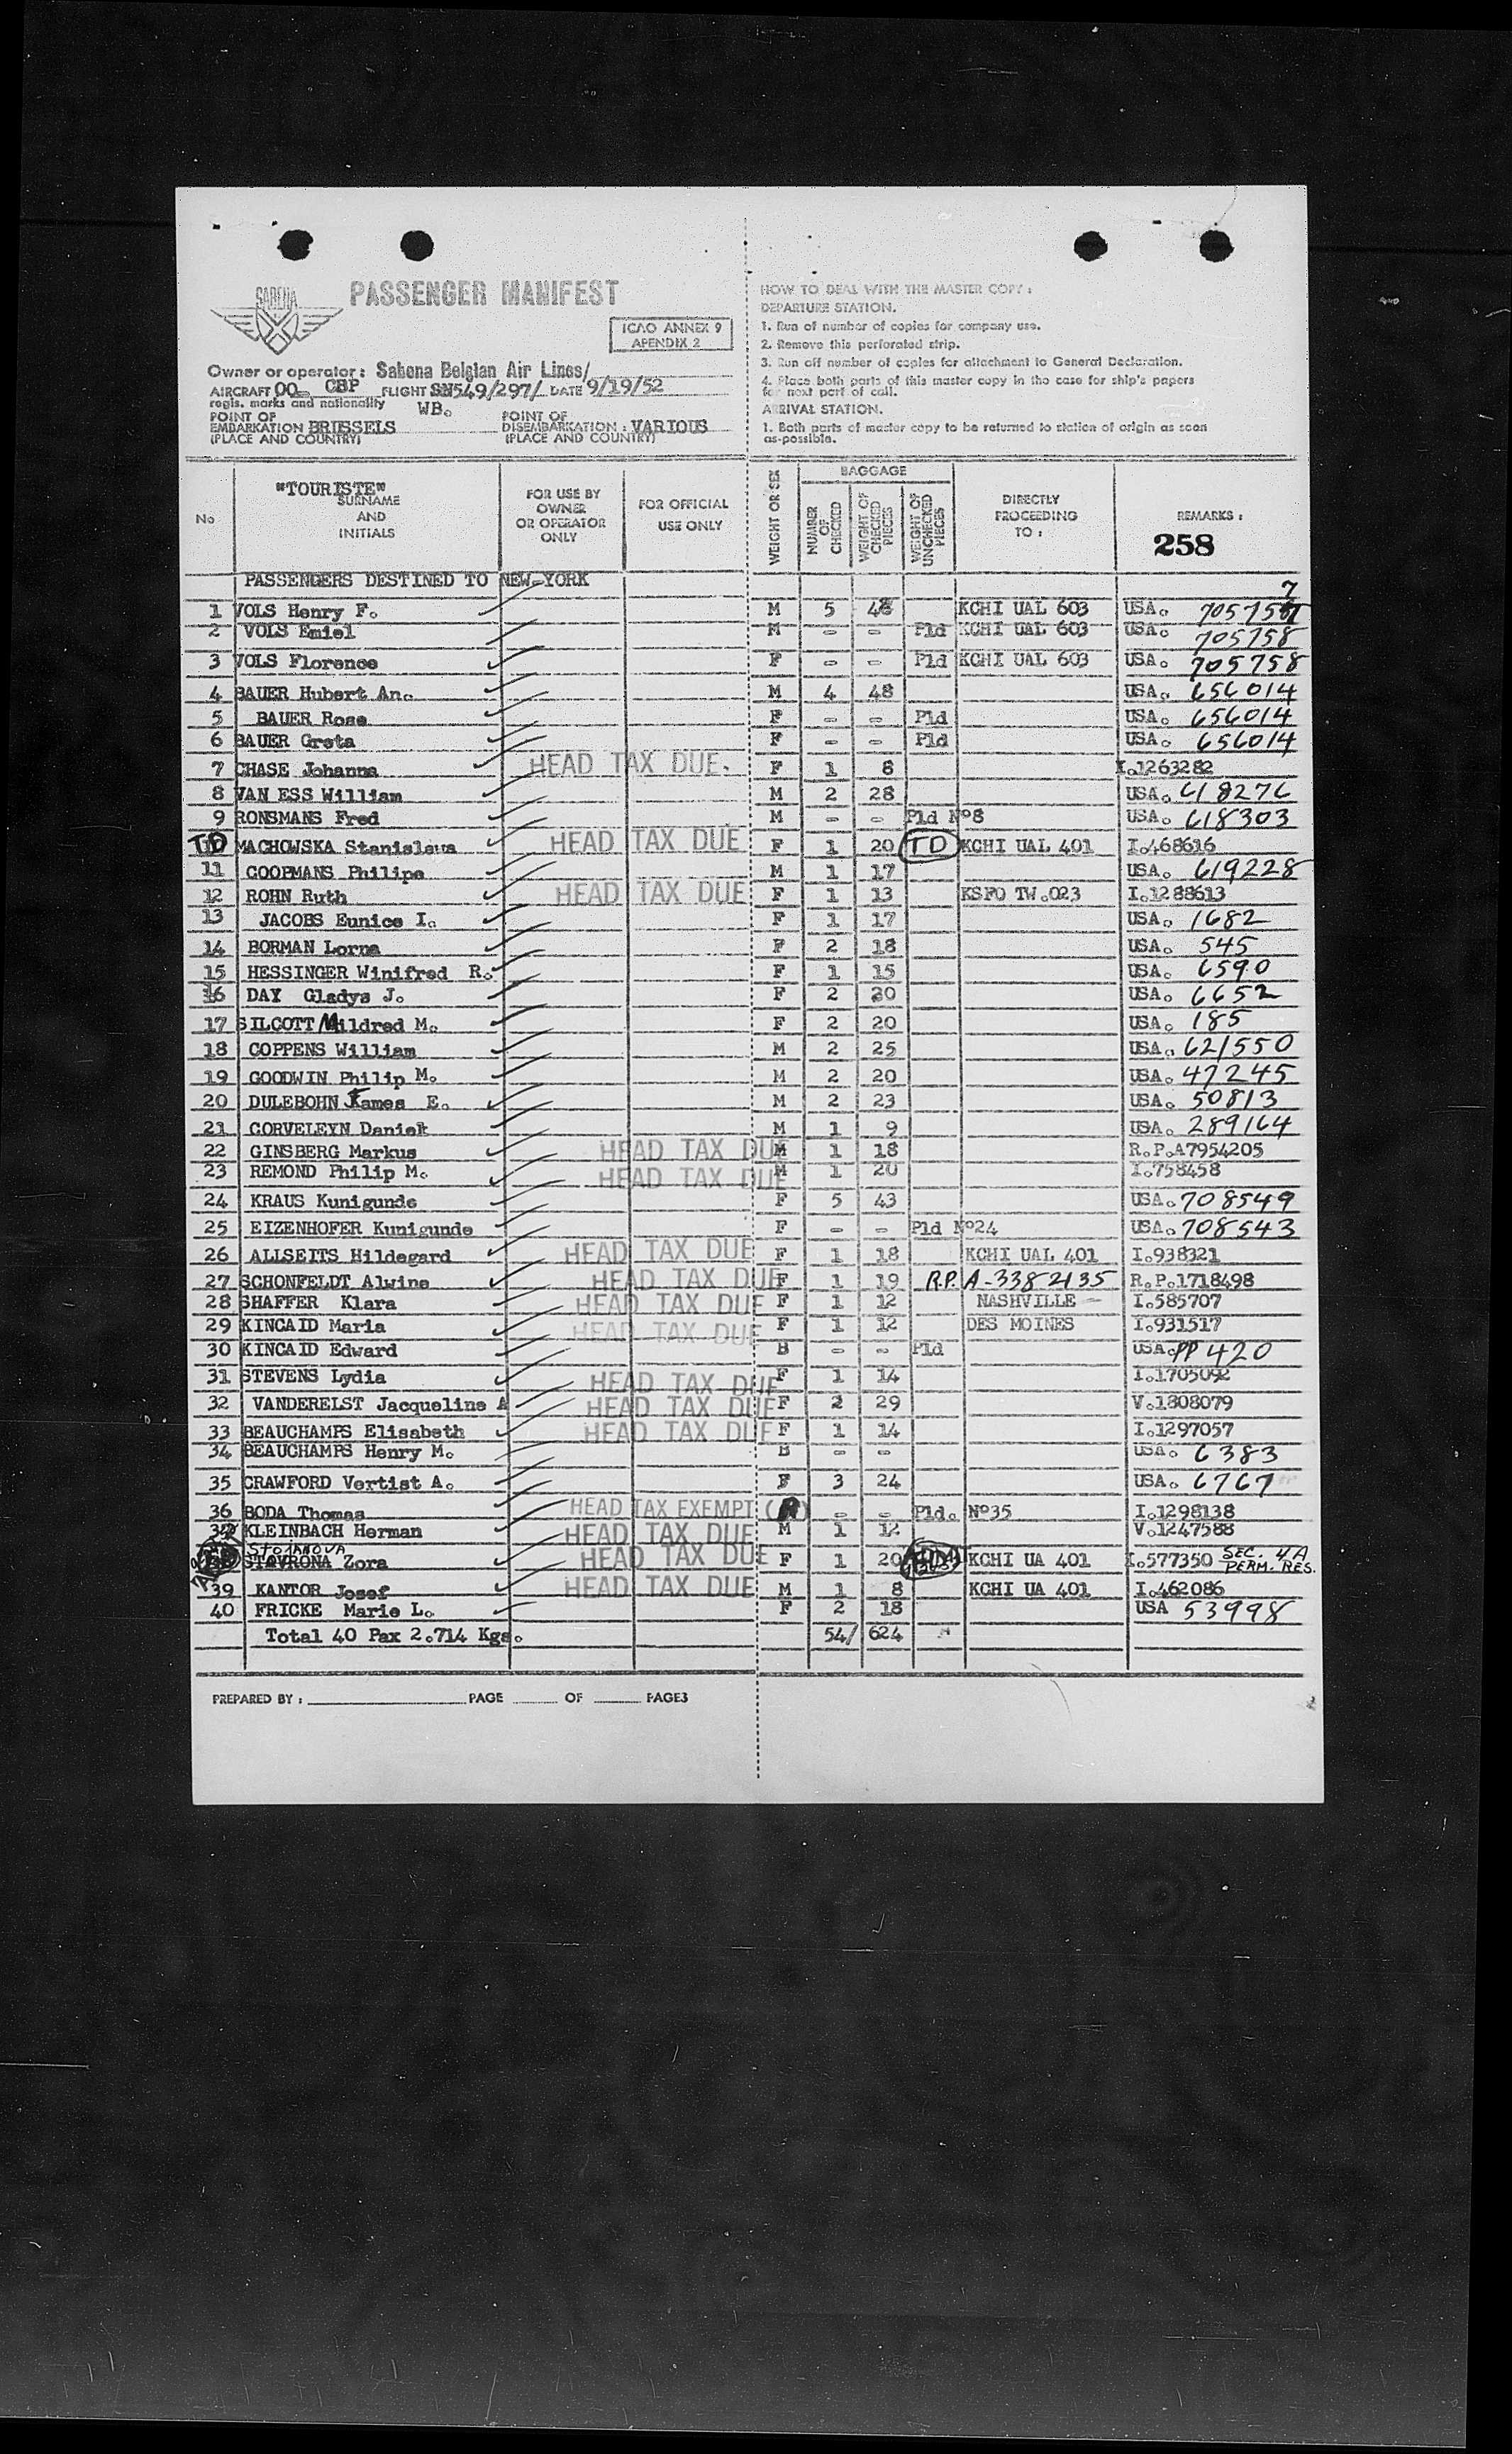 SABENA
PASSENGER MANIFEST
ICAO ANNEX 9
APENDIX 2
Owner or operator : Sabena Belgian Air Lines/
AIRCRAFT OO- CBP FLIGHT SN549/297/ DATE 9/19/52
regis. marks and nationality WB.
POINT OF
EMBARKATION BRUSSELS
(PLACE AND COUNTRY)
POINT OF
DISEMBARKATION : VARIOUS
(PLACE AND COUNTRY)
HOW TO DEAL WITH THE MASTER COPY :
DEPARTURE STATION.
1. Run of number of copies for company use.
2. Remove this perforated strip.
3. Run off number of copies for attachment to General Declaration.
4. Place both parts of this master copy in the case for ship's papers
for next port of call.
ARRIVAL STATION.
1. Both parts of master copy to be returned to station of origin as soon
as-possible.
No
"TOURISTE"
SURNAME
AND
INITIALS
FOR USE BY
OWNER
OR OPERATOR
ONLY
FOR OFFICIAL
USE ONLY
WEIGHT OR SEX
BAGGAGE
NUMBER
OF
CHECKED
WEIGHT OF
CHECKED
PIECES
WEIGHT OF
UNCHECKED
PIECES
DIRECTLY
PROCEEDING
TO :
REMARKS :
258
PASSENGERS DESTINED TO NEW-YORK
1 VOLS Henry F. M 5 48 KCHI UAL 603 USA. 705757
2 VOLS Emiel M - - Pld KCHI UAL 603 USA. 705758
3 VOLS Florence F - - Pld KCHI UAL 603 USA. 705758
4 BAUER Hubert An. M 4 48 USA. 656014
5 BAUER Rose F - - Pld USA. 656014
6 BAUER Greta F - - Pld USA. 656014
7 CHASE Johanna HEAD TAX DUE. F 1 8 I.1263282
8 VAN ESS William M 2 28 USA. 618276
9 RONSMANS Fred M - - Pld Nº8 USA. 618303
TD MACHOWSKA Stanislawa HEAD TAX DUE F 1 20 TD KCHI UAL 401 I.468616
11 COOPMANS Philipe M 1 17 USA. 619228
12 ROHN Ruth HEAD TAX DUE F 1 13 KSFO TW.023 I.1288613
13 JACOBS Eunice I. F 1 17 USA. 1682
14 BORMAN Lorna F 2 18 USA. 545
15 HESSINGER Winifred R. F 1 15 USA. 6590
16 DAY Gladys J. F 2 20 USA. 6652
17 SILCOTT Mildred M. F 2 20 USA. 185
18 COPPENS William M 2 25 USA. 621550
19 GOODWIN Philip M. M 2 20 USA. 47245
20 DULEBOHN James E. M 2 23 USA. 50813
21 CORVELEYN Daniel M 1 9 USA. 289164
22 GINSBERG Markus HEAD TAX DUE M 1 18 R.P.A7954205
23 REMOND Philip M. HEAD TAX DUE M 1 20 I.758458
24 KRAUS Kunigunde F 5 43 USA. 708549
25 EIZENHOFER Kunigunde F - - Pld Nº24 USA. 708543
26 ALLSEITS Hildegard HEAD TAX DUE F 1 18 KCHI UAL 401 I.938321
27 SCHONFELDT Alwine HEAD TAX DUE F 1 19 R.P. A-3382135 R.P.1718498
28 SHAFFER Klara HEAD TAX DUE F 1 12 NASHVILLE - I.585707
29 KINCAID Maria HEAD TAX DUE F 1 12 DES MOINES I.931517
30 KINCAID Edward B - - Pld USA.PP 420
31 STEVENS Lydia HEAD TAX DUE F 1 14 I.1705092
32 VANDERELST Jacqueline A HEAD TAX DUE F 2 29 V.1808079
33 BEAUCHAMPS Elisabeth HEAD TAX DUE F 1 14 I.1297057
34 BEAUCHAMPS Henry M. B - - USA. 6383
35 CRAWFORD Vertist A. F 3 24 USA. 6767
36 BODA Thomas HEAD TAX EXEMPT - - Pld. Nº35 I.1298138
37 KLEINBACH Herman HEAD TAX DUE M 1 12 V.1247588
STOJANOVA
STAVRONA Zora HEAD TAX DUE F 1 20 KCHI UA 401 I.577350 SEC. 4A PERM. RES.
39 KANTOR Josef HEAD TAX DUE M 1 8 KCHI UA 401 I.462086
40 FRICKE Marie L. F 2 18 USA 53998
Total 40 Pax 2.714 Kgs. 54/ 624
PREPARED BY : PAGE OF PAGES